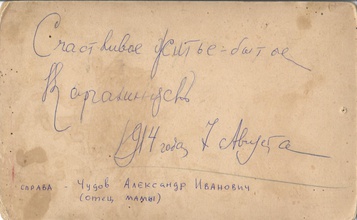 Счастливое устье-бытое
1914 года 7 Августа
справа - Чудов Александр Иванович
(отец мамы)